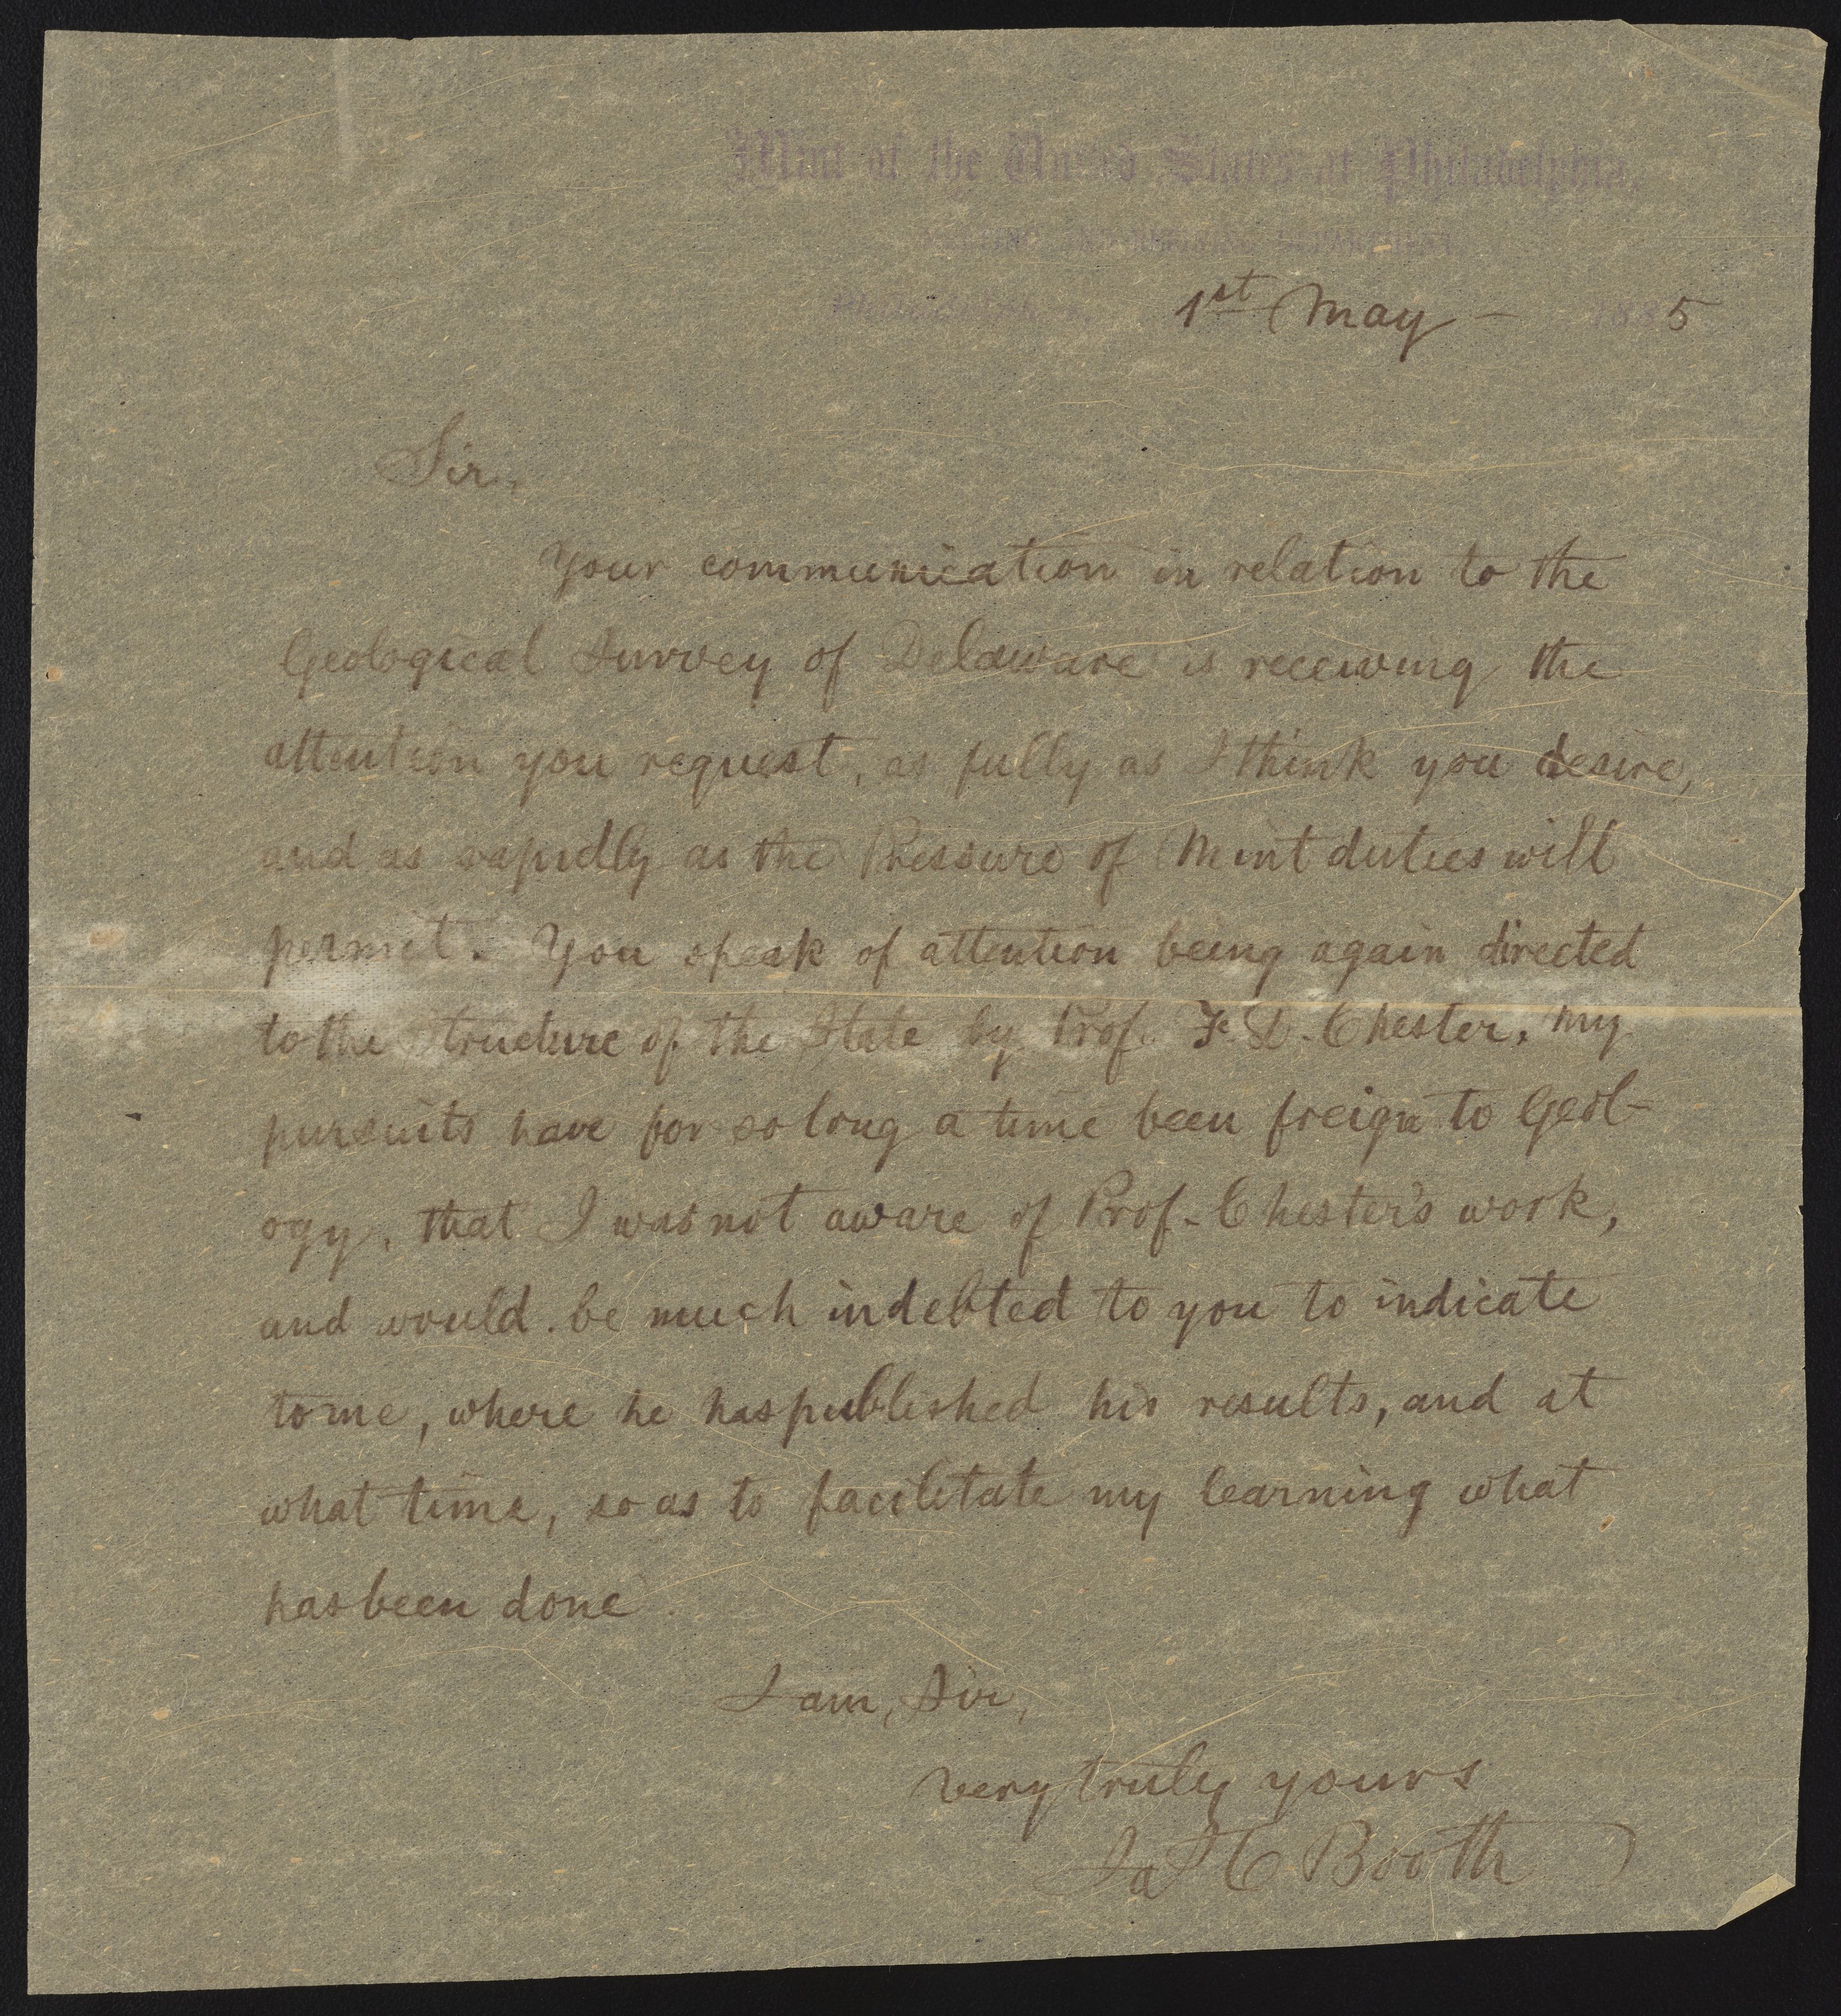 Mint of the United States at Philadelphia,
MELTING AND REFINING DEPARTMENT
Philadelphia, 1st May - 1885
Sir,
Your communication in relation to the
Geological Survey of Delaware is receiving the
attention you request, as fully as I think you desire,
and as rapidly as the Pressure of Mint duties will
permit. You speak of attention being again directed
to the Structure of the State by Prof. F. D. Chester. My
pursuits have for so long a time been freign to Geol-
ogy, that I was not aware of Prof. Chester's work,
and would be much indebted to you to indicate
to me, where he has published his results, and at
what time, so as to facilitate my learning what
has been done.
I am, Sir,
very truly yours
Jas C Booth